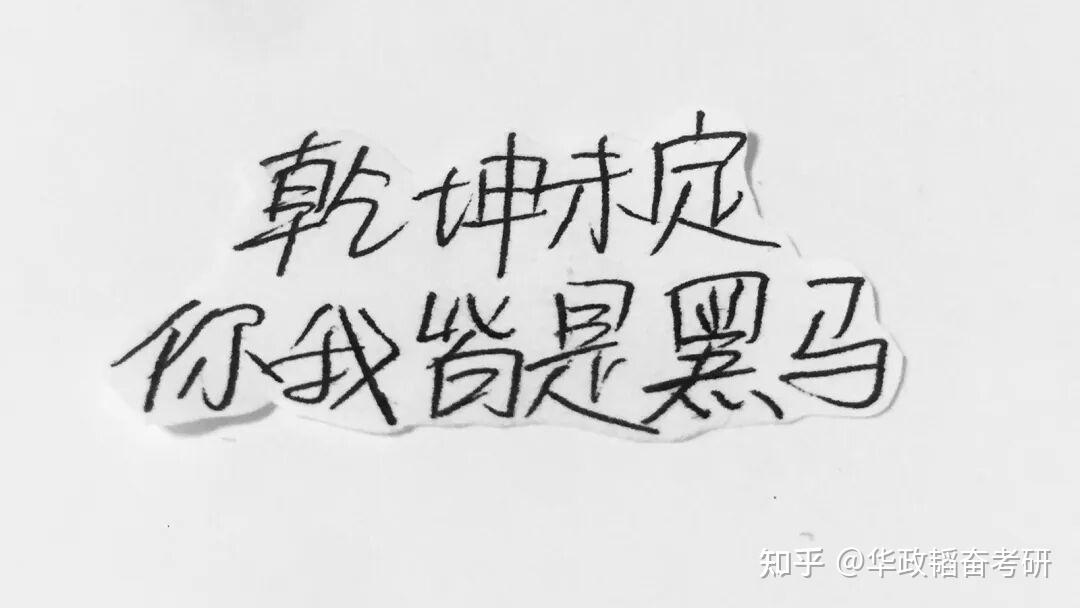 乾坤未定
你我皆是黑马
知乎 @华政韬奋考研